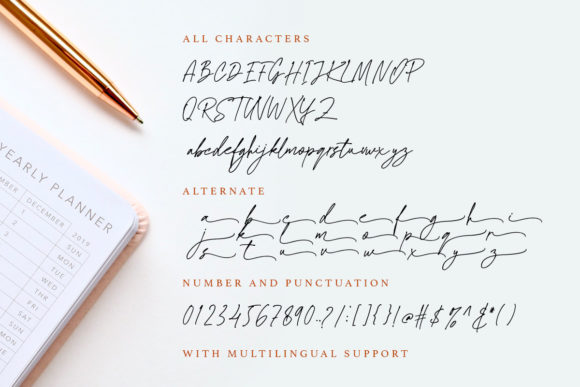 ALL CHARACTERS
ABCDEFGHIJKLMNOP
QRSTUVWXYZ
abcdefghijklmopqrstuvwxyz
ALTERNATE
a b c d e f g h i
j k l m o p q r
s t u v w x y z
NUMBER AND PUNCTUATION
01234567890..?/|:[]{}!@#$%^&*()
WITH MULTILINGUAL SUPPORT
YEARLY PLANNER
DECEMBER 2019
SUN
MON
TUE
WED
THR
FRI
SAT
SUN
MON